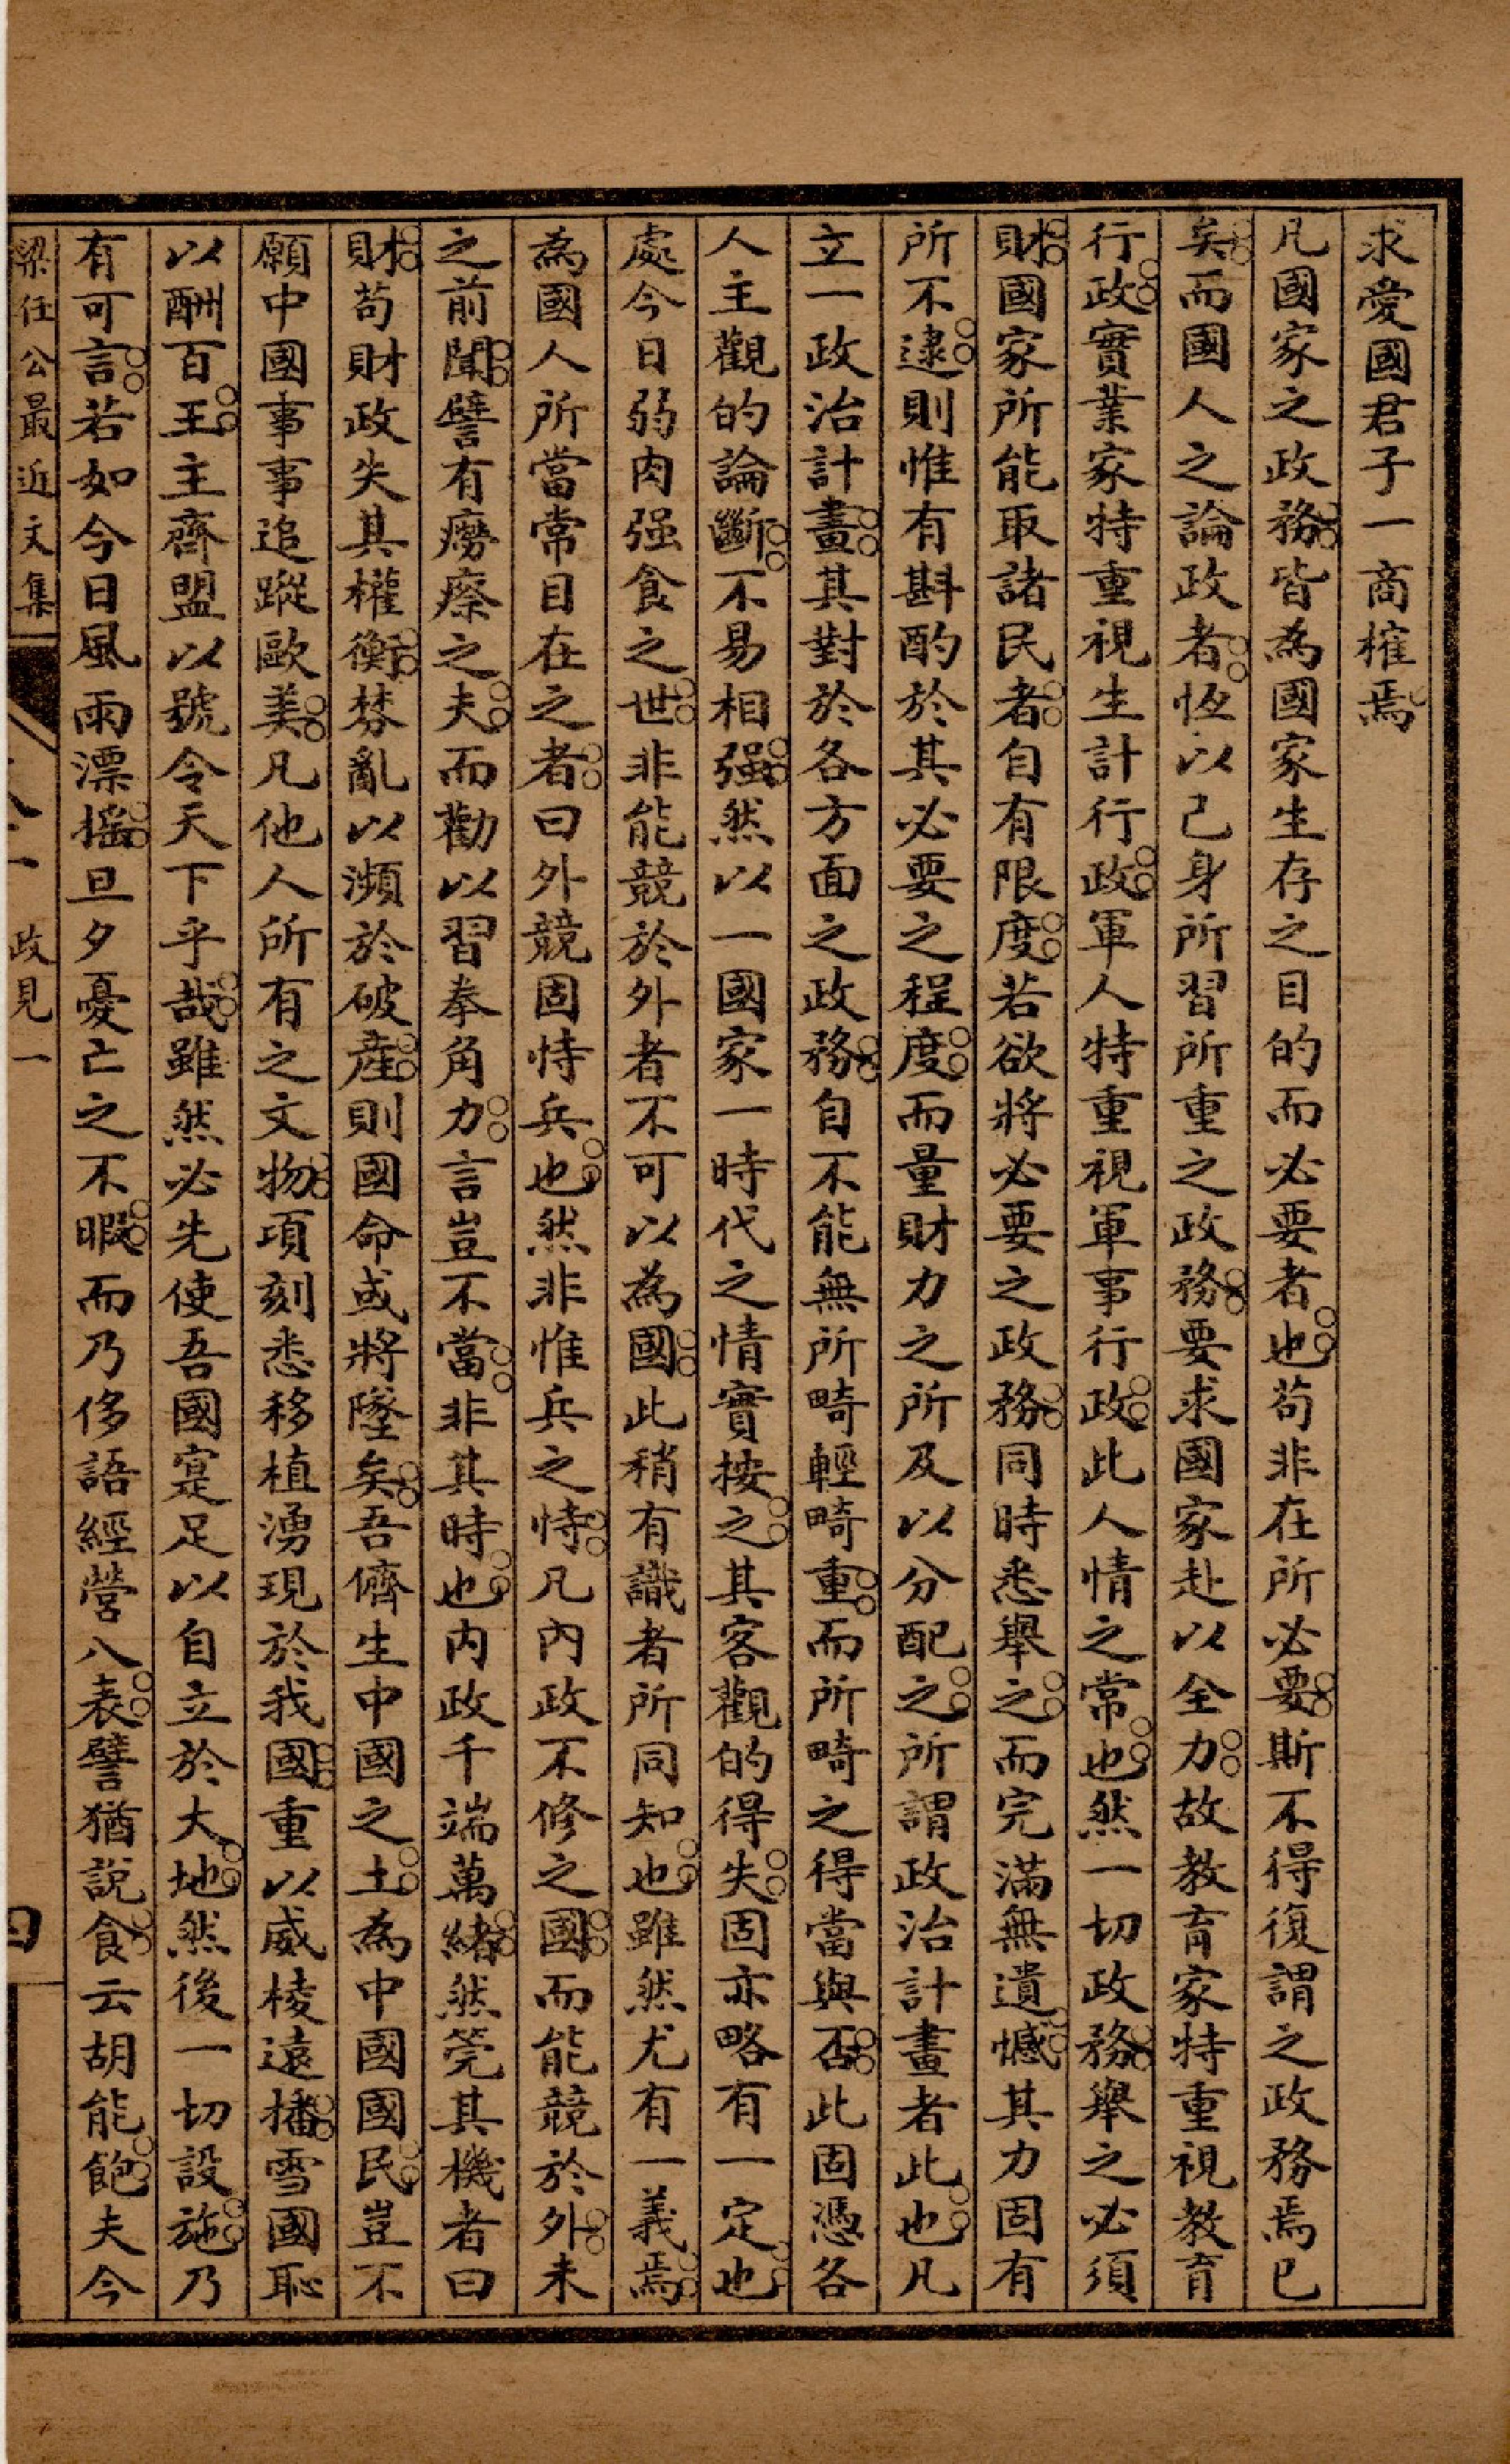 求愛國君子一商榷焉
凡國家之政務皆為國家生存之目的而必要者也苟非在所必要斯不得復謂之政務焉已
矣而國人之論政者恆以己身所習所重之政務要求國家赴以全力故教育家特重視教育
行政實業家特重視生計行政軍人特重視軍事行政此人情之常也然一切政務舉之必須
財國家所能取諸民者自有限度若欲將必要之政務同時悉舉之而完滿無遺憾其力固有
所不逮則惟有斟酌於其必要之程度而量財力之所及以分配之所謂政治計畫者此也凡
立一政治計畫其對於各方面之政務自不能無所畸輕畸重而所畸之得當與否此固憑各
人主觀的論斷不易相强然以一國家一時代之情實按之其客觀的得失固亦略有一定也
處今日弱肉强食之世非能競於外者不可以為國此稍有識者所同知也雖然尤有一義焉
為國人所當常目在之者曰外競固恃兵也然非惟兵之恃凡內政不修之國而能競於外未
之前聞譬有癆瘵之夫而勸以習拳角力言豈不當非其時也內政千端萬緒然筦其機者曰
財苟財政失其權衡棼亂以瀕於破產則國命或將墜矣吾儕生中國之土為中國國民豈不
願中國事事追蹤歐美凡他人所有之文物頃刻悉移植湧現於我國重以威棱遠播雪國恥
以酬百王主齊盟以號令天下乎哉雖然必先使吾國寔足以自立於大地然後一切設施乃
有可言若如今日風雨漂搖旦夕憂亡之不暇而乃侈語經營八表譬猶說食云胡能飽夫今
梁任公最近文集
政見一
四